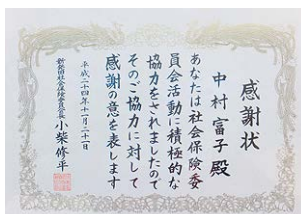 感謝状
中村富子殿
あなたは社会保険委
員会活動に積極的な
協力をされましたので
そのご協力に対して
感謝の意を表します
平成二十四年十一月二十一日
新発田社会保険委員会長 小柴修平